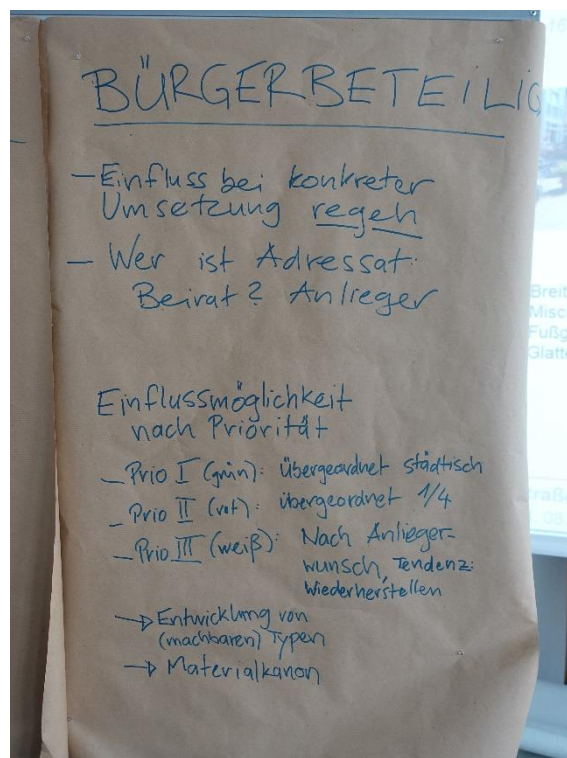 BÜRGERBETEILIG
- Einfluss bei konkreter
Umsetzung regeln
- Wer ist Adressat:
Beirat? Anlieger
Einflussmöglichkeit
nach Priorität
- Prio I (grün): übergeordnet städtisch
- Prio II (rot): übergeordnet 1/4
- Prio III (weiß): Nach Anlieger-
wunsch, Tendenz:
Wiederherstellen
→ Entwicklung von
(machbaren) Typen
→ Materialkanon
Breit
Misc
Fußg
Glatte